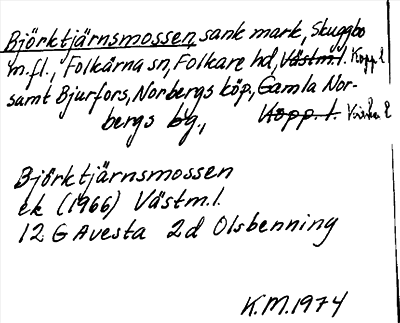 Björktjärnsmossen, sank mark, Skuggbo
m.fl., Folkärna sn, Folkare hd, Västm.l. Kopp. l
samt Bjurfors, Norbergs köp., Gamla Nor-
bergs bg., Kopp. l.
Björktjärnsmossen
ek (1966) Västm.l.
12 G Avesta 2d Olsbenning
K.M. 1974